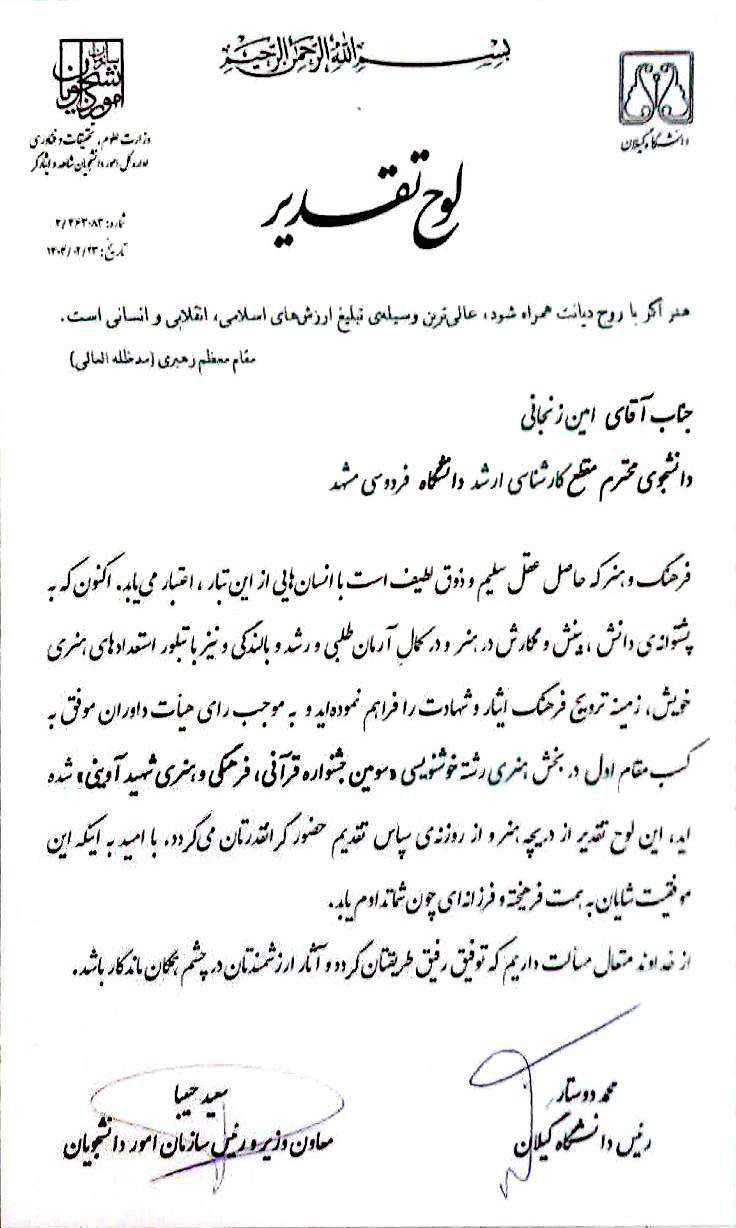 بسم الله الرحمن الرحیم
دانشگاه گیلان
سازمان امور دانشجویان
وزارت علوم، تحقیقات و فناوری
اداره کل امور دانشجویان شاهد و ایثارگر
لوح تقدیر
شماره: ۲/۴۶۳۰۸۳
تاریخ: ۱۴۰۴/۰۲/۲۳
هنر اگر با روح دیانت همراه شود، عالی‌ترین وسیله‌ی تبلیغ ارزش‌های اسلامی، انقلابی و انسانی است.
مقام معظم رهبری (مدظله العالی)
جناب آقای امین زنجانی
دانشجوی محترم مقطع کارشناسی ارشد دانشگاه فردوسی مشهد
فرهنگ و هنر که حاصل عقل سلیم و ذوق لطیف است با انسان‌هایی از این تبار، اعتبار می‌یابد. اکنون که به
پشتوانه‌ی دانش، بینش و نگارش در هنر و در کمال آرمان طلبی و رشد و بالندگی و نیز با تبلور استعدادهای هنری
خویش، زمینه ترویج فرهنگ ایثار و شهادت را فراهم نموده‌اید و به موجب رای هیأت داوران موفق به
کسب مقام اول در بخش هنری رشته خوشنویسی «سومین جشنواره قرآنی، فرهنگی و هنری شهید آوینی» شده
اید، این لوح تقدیر از دریچه هنر و از روزنه‌ی سپاس تقدیم حضور گرانقدرتان می‌گردد. با امید به اینکه این
موفقیت شایان به همت فرهیخته و فرزانه‌ای چون شما تداوم یابد.
از خداوند متعال مسألت داریم که توفیق رفیق طریقتان گردد و آثار ارزشمندتان در چشم همگان ماندگار باشد.
محمد دوستار
رئیس دانشگاه گیلان
سعید حبیبا
معاون وزیر و رئیس سازمان امور دانشجویان